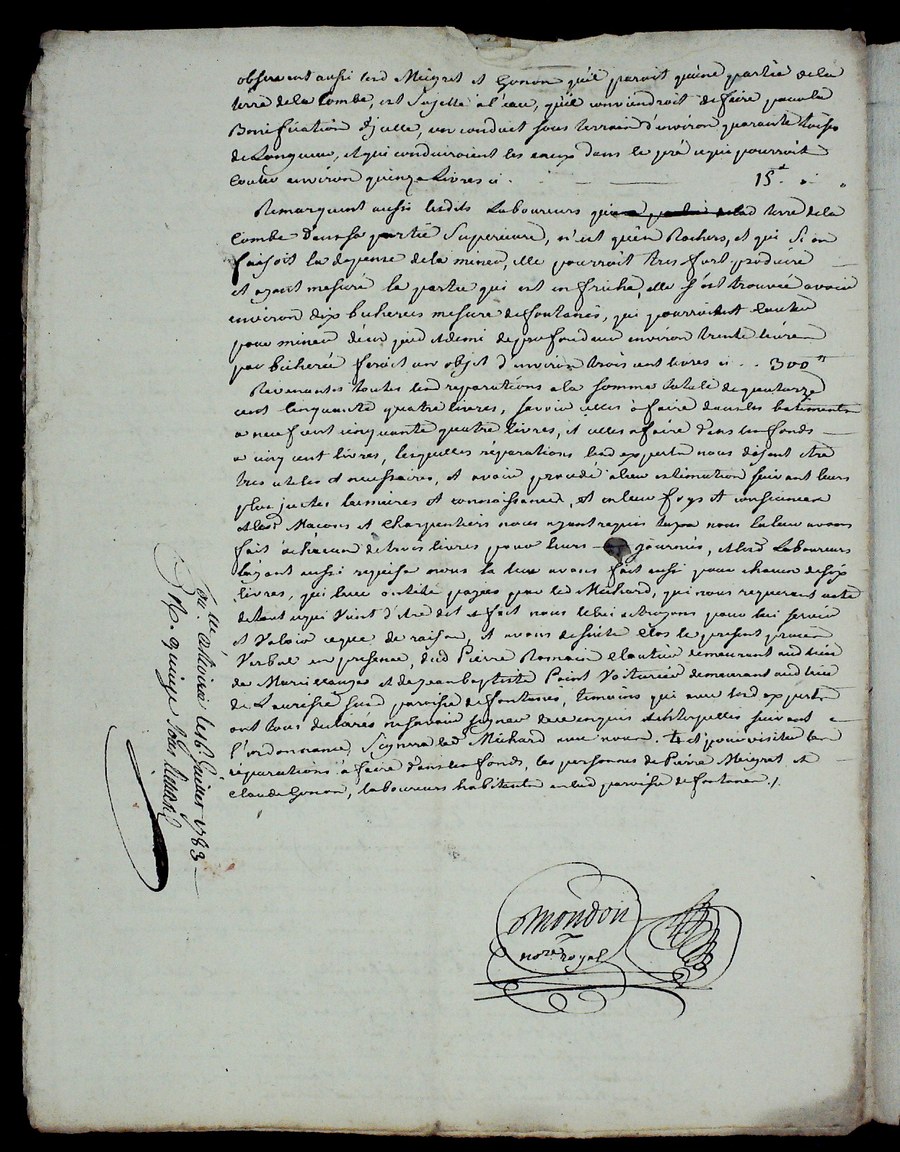 observent aussi lesd Meigret et Gonon qu'il paroit qu'une partie de la
terre de la Combe, est Sujette a l'eau, qu'il conviendroit de faire pour la
Bonification d'jcelle, un conduit sous terrain d'environ quarante toises
de Longueur, et qui conduiroient les eaux dans le pré ce qui pourroit
couter environ quinze Livres ci . 15ᵗ
Remarquent aussi lesdits Laboureurs que lad terre de la
Combe dans sa partie Superieure, n'est qu'en Rochers, et qui Si on
faisoit la depense de la miner, elle pourroit tres fort produire
et ayant mesuré la partie qui est en friche, elle s'est trouvée avoir
environ dix bicherées mesure de fontanés, qui pourroient couter
pour miner deux pied et demi de profondeur environ trente livres
par bicherée feroit un objet d'environ trois cent livres ci . . 300ᵗᵗ
Revenantes toutes lesd reparations a la somme totale de quatorze
cent cinquante quatre livres, Savoir celles à faire dans les batiments
a neuf cent cinquante quatre livres, et celles a faire dans les fonds
a cinq cent livres, lesquelles réparations lesd experts nous disent etre
tres utiles et necessaires, et avoir procedé a leur estimation suivant leurs
plus justes lumieres et connoissances, et en leur foys et consciences
et lesd Macons et Charpentiers nous ayant requis taxe nous la leur avons
fait à chacun de trois livres pour leurs journées, et lesd Laboureurs
layant aussi requise nous la leur avons fait aussi pour chacun de six
livres, qui leur ont été payés par led Michard, qui nous requerant acte
de tout ce qui Vient d'etre dit et fait nous le lui octroyons pour lui Servir
et Valoir ce que de raison, et avons de suite clos le present procès
Verbal en presence, dud Pierre Romain cloutier demeurant aud lieu
de et de Jean baptiste Point Voiturier demeurant aud lieu
de Susd paroisse de fontanés, temoins qui avec lesd experts
ont tous declarés ne savoir signer de ce enquis et interpellés suivant
l'ordonnance, Signera led Michard avec nous. et pour visiter les
réparations à faire dans les fonds, les personnes de Pierre Meigret et
Claude Gonon, laboureurs habitants en lad paroisse de fontanes ./.
le 6 Juillet 1783
R. quinze Sols
Mondon
noʳᵉ royal